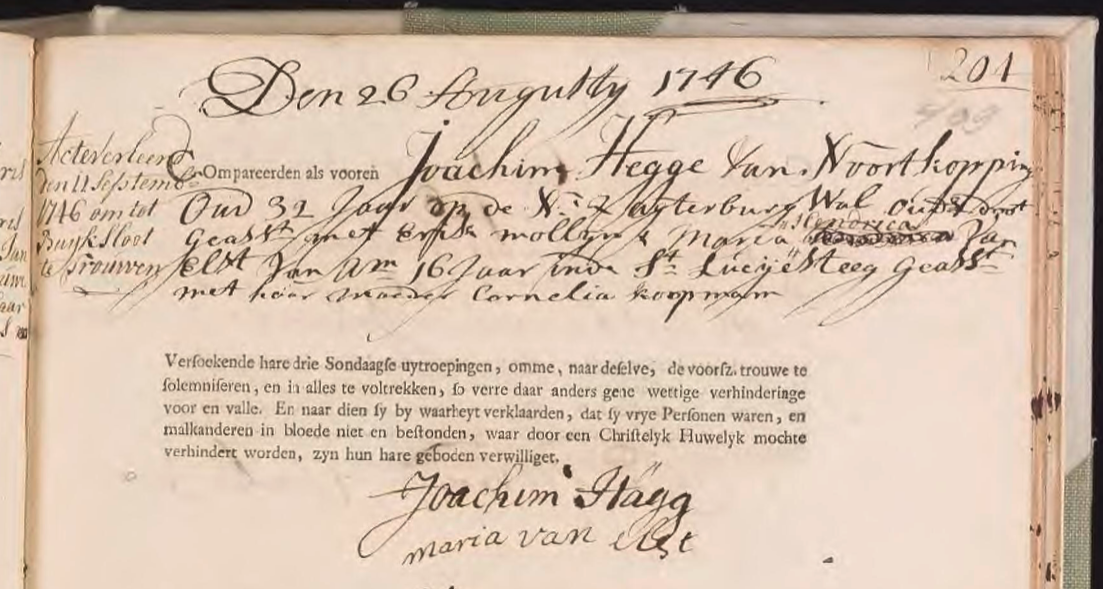 201
Den 26 Augusty 1746
Acte verleend
den 11 Septemb
1746 om tot
Buyksloot
te trouwen
Compareerden als vooren Joachim Hegge Van Noortkopping
Oud 32 Jaar op de N: Z agterburg Wal ouders doot
Geasst met Maria Hendrica Van
Elst Van Am 16 Jaar in de St Lucyësteeg Geasst
met haar moeder Cornelia koopmam
Versoekende hare drie Sondaagse uytroepingen, omme, naar deselve, de voorsz. trouwe te
solemniseren, en in alles te voltrekken, so verre daar anders gene wettige verhinderinge
voor en valle. En naar dien sy by waarheyt verklaarden, dat sy vrye Personen waren, en
malkanderen in bloede niet en bestonden, waar door een Christelyk Huwelyk mochte
verhindert worden, zyn hun hare geboden verwilliget.
Joachim Hägg
maria van elst